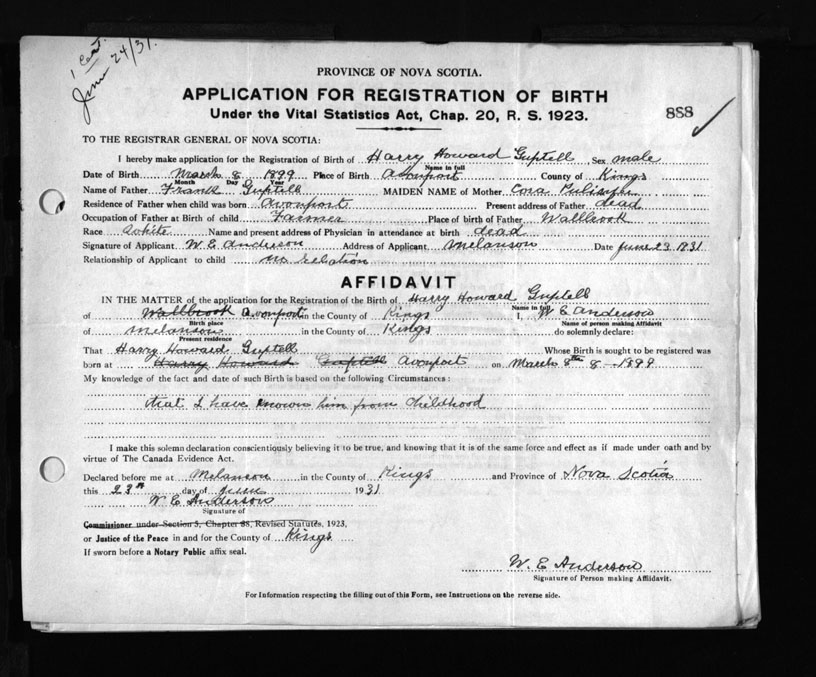 1 Cert.
June 24/31.
PROVINCE OF NOVA SCOTIA.
APPLICATION FOR REGISTRATION OF BIRTH
Under the Vital Statistics Act, Chap. 20, R. S. 1923.
888
TO THE REGISTRAR GENERAL OF NOVA SCOTIA:
I hereby make application for the Registration of Birth of Harry Howard Guptell Sex male
Name in full
Date of Birth March 8 1899 Place of Birth Avonport County of Kings
Month Day Year
Name of Father Frank Guptell MAIDEN NAME of Mother Cora
Residence of Father when child was born Avonport Present address of Father dead
Occupation of Father at Birth of child Farmer Place of birth of Father Wallbrook
Race White Name and present address of Physician in attendance at birth dead
Signature of Applicant W. E. Anderson Address of Applicant Melanson Date June 23 1931
Relationship of Applicant to child no relation
AFFIDAVIT
IN THE MATTER of the application for the Registration of the Birth of Harry Howard Guptell
Name in full
of Wallbrook Avonport in the County of Kings I, W E Anderson
Birth place Name of person making Affidavit
of Melanson in the County of Kings do solemnly declare:
Present residence
That Harry Howard Guptell Whose Birth is sought to be registered was
born at Harry Howard Guptell Avonport on March 8th 8 1899
My knowledge of the fact and date of such Birth is based on the following Circumstances:
that I have known him from childhood
I make this solemn declaration conscientiously believing it to be true, and knowing that it is of the same force and effect as if made under oath and by
virtue of The Canada Evidence Act.
Declared before me at Melanson in the County of Kings and Province of Nova Scotia
this 23rd day of June 1931
W. E Anderson
Signature of
Commissioner under Section 3, Chapter 88, Revised Statutes, 1923,
or Justice of the Peace in and for the County of Kings
If sworn before a Notary Public affix seal.
W. E Anderson
Signature of Person making Affidavit.
For Information respecting the filling out of this Form, see Instructions on the reverse side.